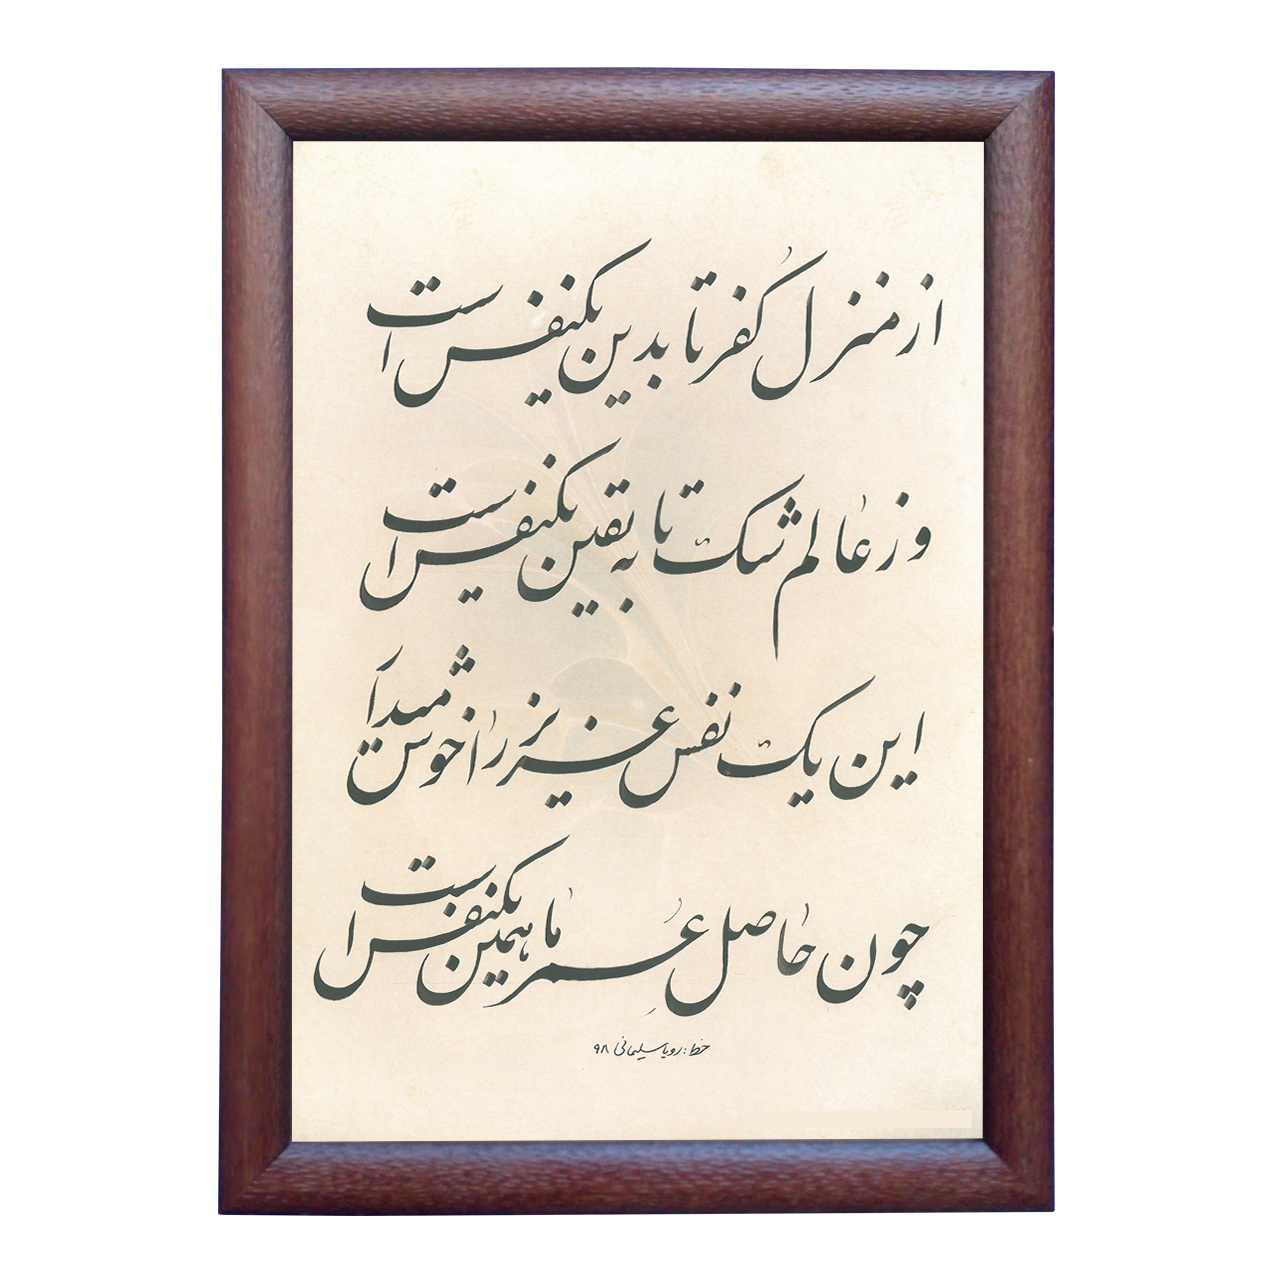 از منزل کُفر تا بدین یکنفس است
وز عالم شک تا به یقین یکنفس است
این یک نفس عزیز را خوش میدار
چون حاصل عُمرِ ما همین یکنفس است
خط : رویا سلیمانی ۹۸